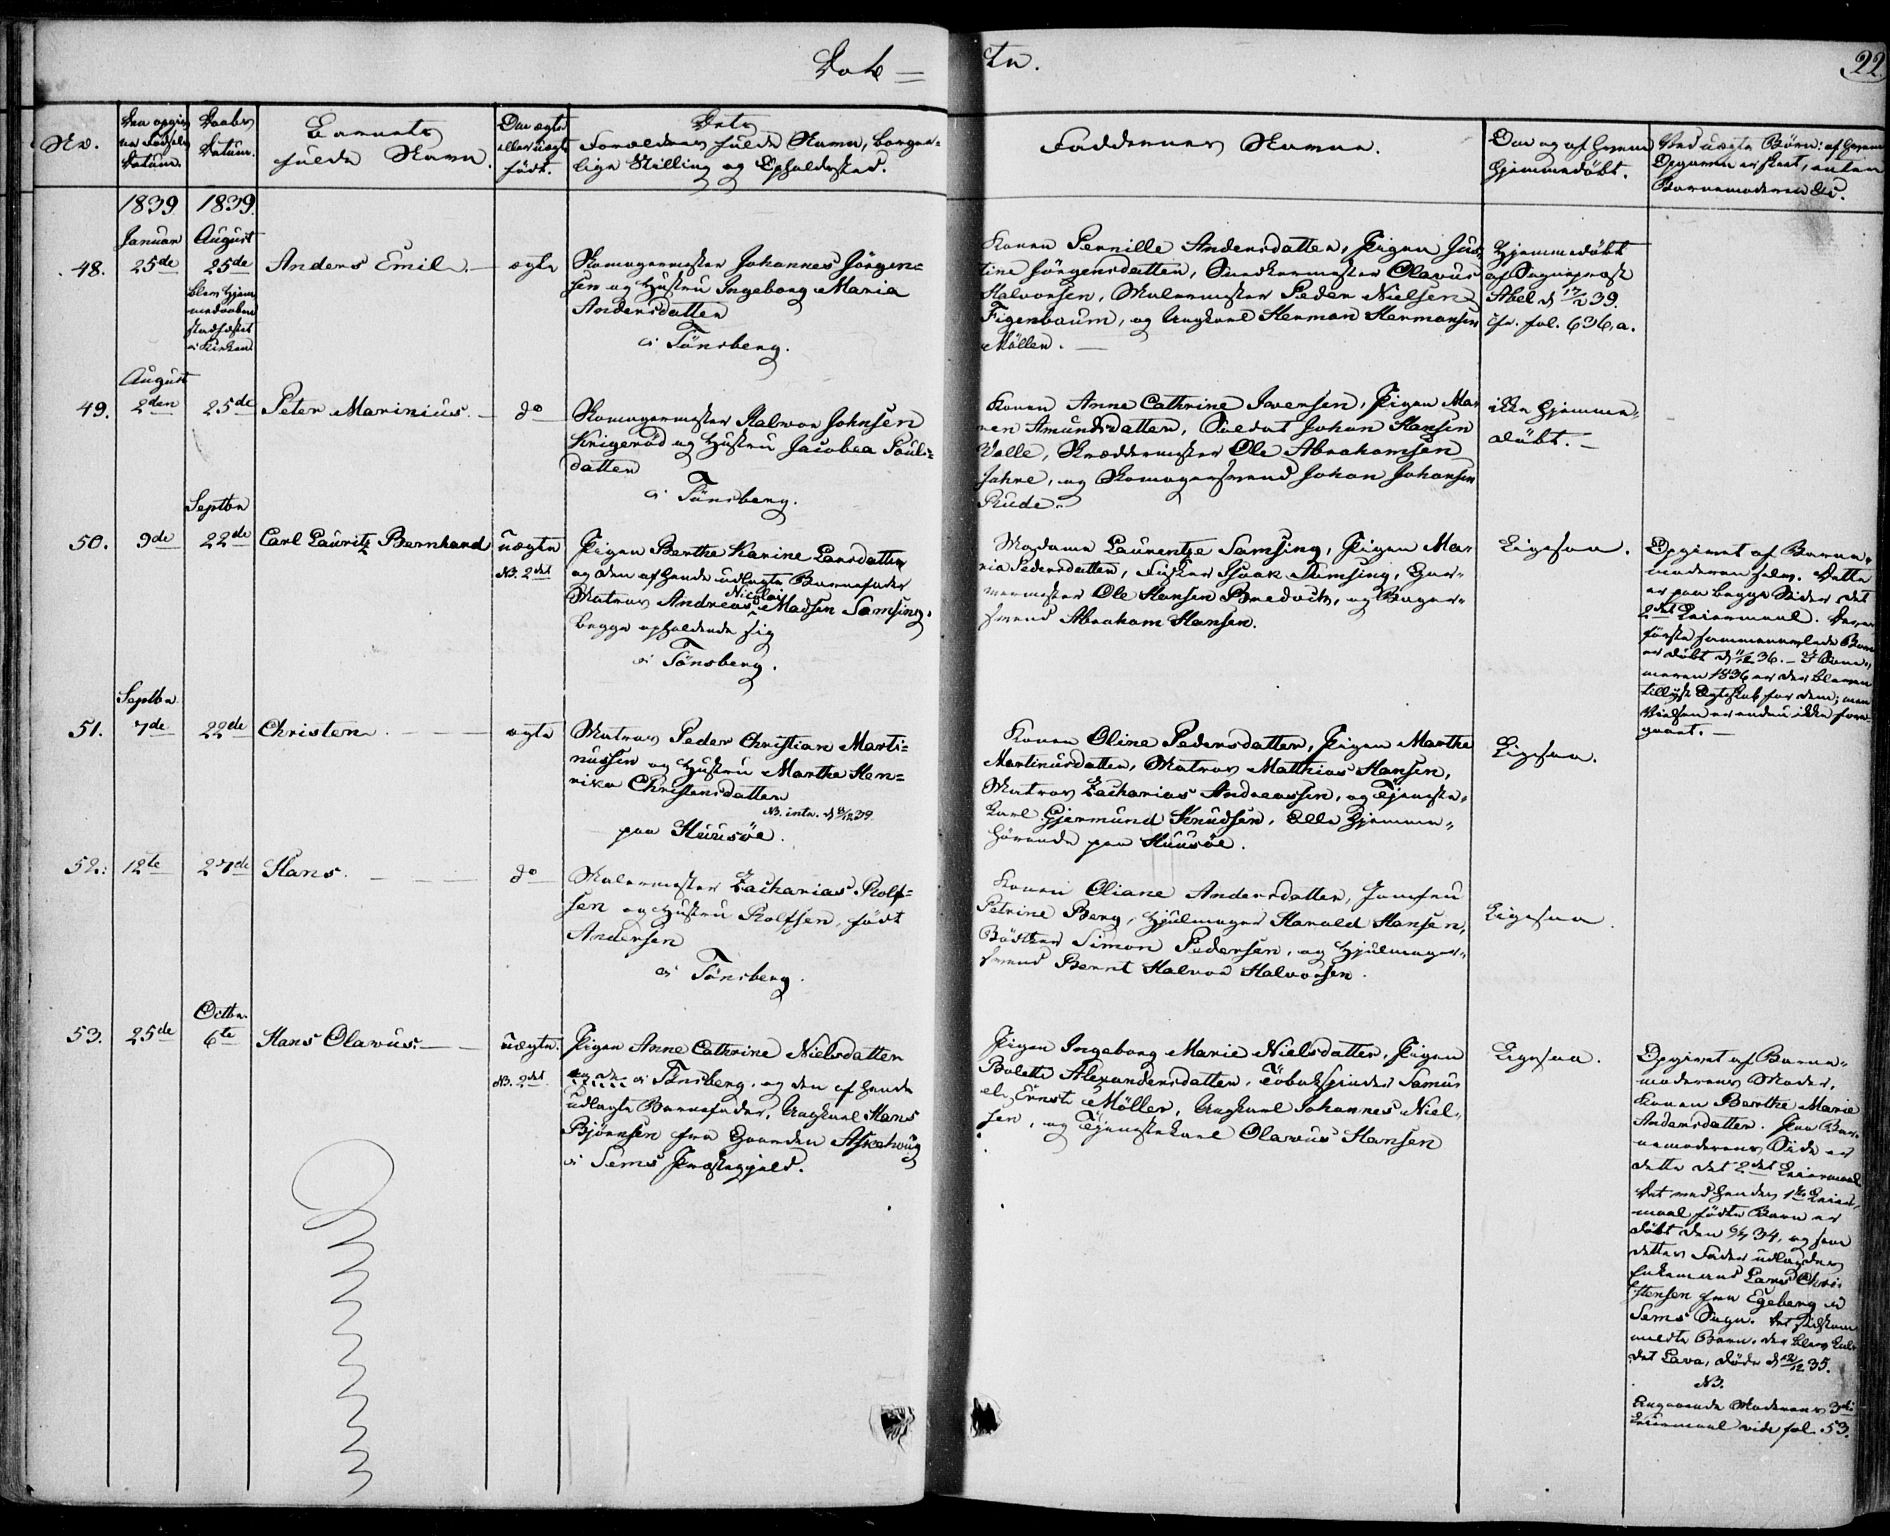 Døbte.
22.
No.
Den opgiv
ne Fødsels
Datum.
Daabs
Datum.
Barnets
fulde Navn.
Om ægte
eller uægte
født.
Dets
Forældres fulde Navne, borger=
lige Stilling og Opholdssted.
Faddernes Navne.
Om og af hvem
hjemmedøbt.
Ved uægte Børn: af hvem
Opgaven er skeet, enten
Barnemoderen &c.
1839 1839.
Januar August
48. 25de 25de Anders Emil. ægte
blev hjem
medaaben
stadfæstet
i Kirken
Skomagermester Johannes Jörgen=
sen og Hustru Ingeborg Maria
Andersdatter
i Tönsberg.
Konen Pernille Andersdatter, Pigen Jus
tine Jörgensdatter, Snedkermester Olavus
Halvorsen, Malermester Peder Nielsen
Figenbaum, og Ungkarl Herman Hermansen
Möllen.
Hjemmedøbt
af Sognepræst
Abel d 17/2 39.
cfr. fol. 636.a.
August
49. 2den 25de Peter Marinius. do
Skomagermester Halvor Johnsen
Krigeröd og Hustru Jacobea Pouls=
datter
i Tönsberg.
Konen Anne Cathrine Iversen, Pigen Ma
ren Amundsdatter, Soldat Johan Hansen
Valle, Skræddermester Ole Abrahamsen
Jahre, og Skomagersvend Johan Johansen
Rude.
ikke hjemme=
døbt.
Septbr
50. 9de 22de Carl Lauritz Bernhard uægte
NB. 2det
Pigen Berthe Karine Larsdatter
og den af hende udlagte Barnefader
Matros Andreas Nicolai Madsen Samsing,
begge opholdende sig
i Tönsberg.
Madame Laurentze Samsing, Pigen Ma
ria Pedersdatter, Fisker Isaak Samsing, Gar=
vermester Ole Hansen Bredoch, og Bager=
svend Abraham Hansen.
Ligesaa.
Opgivet af Barne=
moderen selv. Dette
er paa begge Sider det
2det Leiermaal. Deres
første sammenavlede Barn
er døbt d 11/12 36. –
1836 er der bleven
tillyst Ægteskab for dem; men
Vielsen er endnu ikke fore=
gaaet.
Septbr
51. 7de 22de Christen. ægte
Matros Peder Christian Marti=
nussen og Hustru Marthe Hen=
rika Christensdatter
paa Huusöe.
Konen Oline Pedersdatter, Pigen Marthe
Martinusdatter, Matros Matthias Hansen,
Matros Zacharias Andreassen, og Tjeneste=
karl Gjermund Knudsen. Alle hjemme=
hörende paa Huusöe.
Ligesaa.
52. 12te 27de Hans. do
Malermester Zacharias Rolf=
sen og Hustru Rolfsen, født
Andersen
i Tönsberg.
Konen Oliane Andersdatter, Jomfru
Petrine Berg, Hjulmager Harald Hansen,
Bödker Simon Pedersen, og Hjulmager=
svend Bernt Halvor Halvorsen.
Ligesaa.
Octbr.
53. 25de 6te Hans Olavus. uægte.
NB. 2det
Pigen Anne Cathrine Nielsdatter
i Tönsberg, og den af hende
udlagte Barnefader, Ungkarl Hans
Bjørnsen fra Gaarden Askehoug
i Sems Præstegjeld.
Pigen Ingeborg Marie Nielsdatter, Pigen
Bolette Alexandersdatter, Tobakspinder Samu
el Ernst Möller, Ungkarl Johannes Niel=
sen, og Tjenestekarl Olavus Hansen
Ligesaa.
Opgivet af Barne=
moderens Moder,
Konen Berthe Marie
Andersdatter. Paa Bar=
nemoderens Side er
dette det 2det Leiermaal
Det med hendes 1ste Leier=
maal födte Barn er
døbt den 6/7 34, og som
dettes Fader udlagdes
Enkemand Lars Chri=
stensen fra Egeberg i
Sems Sogn. Det
meldte Barn, der blev kal=
det Lava, döde d 12/12 35.
NB.
Angaaende Moderens 3die
Leiermaal vide fol. 53.